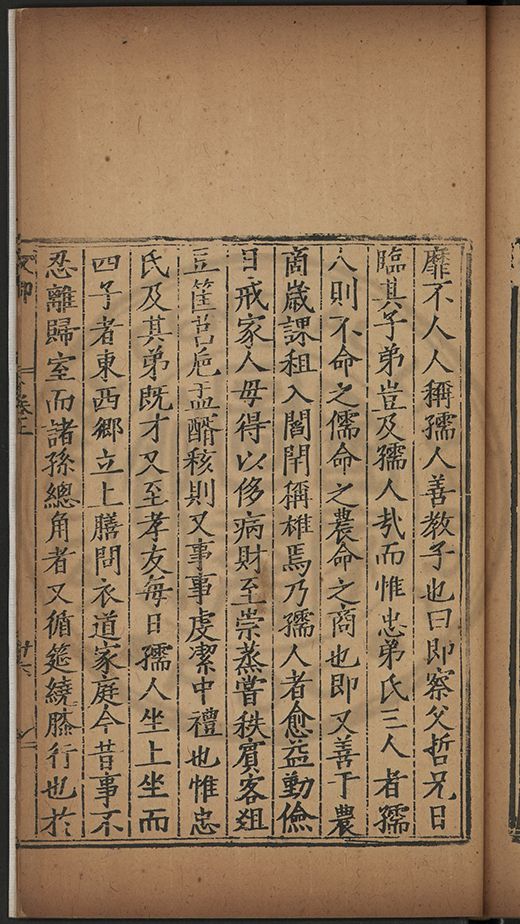 靡不人人稱孺人善教子也曰卽察父哲兄日
臨其子弟豈及孺人哉而惟忠弟氏三人者孺
人則不命之儒命之農命之商也卽又善于農
啇嵗課租入閭閈稱雄焉乃孺人者愈益勤儉
日戒家人毋得以侈病財至崇蒸嘗秩賓客俎
豆筐筥巵盂醑核則又事事虔潔中禮也惟忠
氏及其弟旣才又至孝友每日孺人坐上坐而
四子者東西鄉立上膳問衣道家庭今昔事不
忍離歸室而諸孫總角者又循筵繞膝行也於
卷三